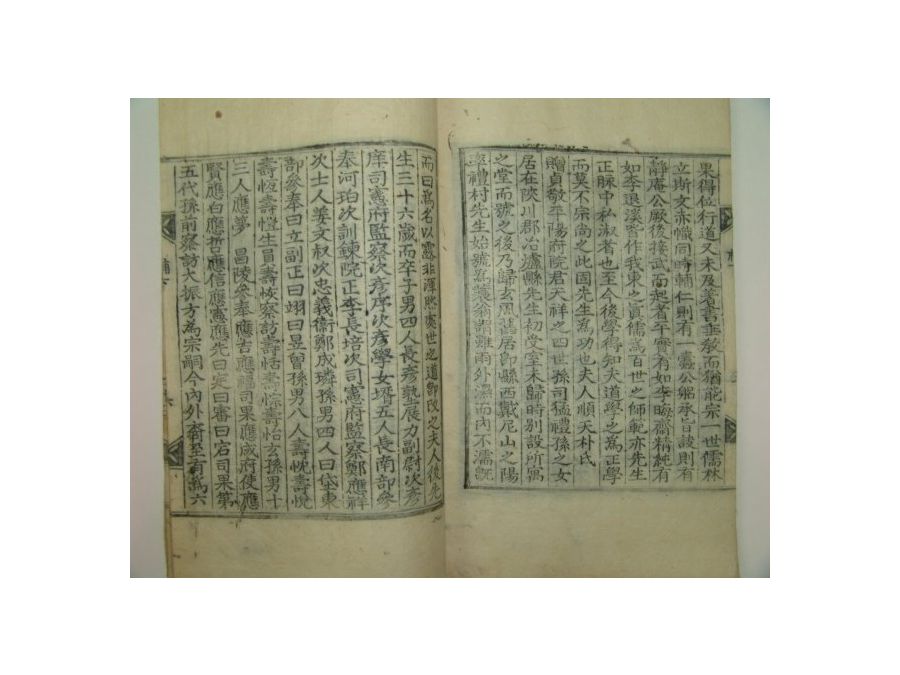 果得位行道又未及著書垂教而猶能宗一世儒林
立斯文赤幟同時輔仁則有一蠹公娣承旨訣則有
靜庵公厥後接武而起者平實有如李晦齋精純有
如李退溪皆作我東之眞儒爲百世之師範亦先生
正脉中私淑者也至今後學得知夫道學之爲正學
而莫不宗尚之此国先生爲功也夫人順天朴氏
贈貞敬平陽府院君天祥之四世孫司猛禮孫之女
居在陜川郡冶爐縣先生初受室未歸時别設所寓
之堂而號之後乃歸玄風舊居卽縣西戴尼山之陽
率禮村先生始號爲蓑翁謂雖雨外濕而内不濡旣
而曰爲名以露非渾然處世之道卽改之夫人後先
生三十六歲而卒子男四人長彦塾展力副尉次彦
庠司憲府監察次彦序次彦學女壻五人長南部參
奉河珀次訓鍊院正李長培次司憲府監察鄭應祥
次士人姜文叔次忠義衛鄭成璘孫男四人曰岱東
部參奉曰立副正曰翊曰昱曾孫男八人壽忱壽悅
壽恆壽愷生員壽恢察訪壽恬壽悰壽怡玄孫男十
三人應夢 昌陵參奉應吉應福司果應成府使應
賢應白應哲應信應憲應先曰定曰審曰宕司果第
五代孫前察訪大振方為宗嗣今内外裔至有萬六